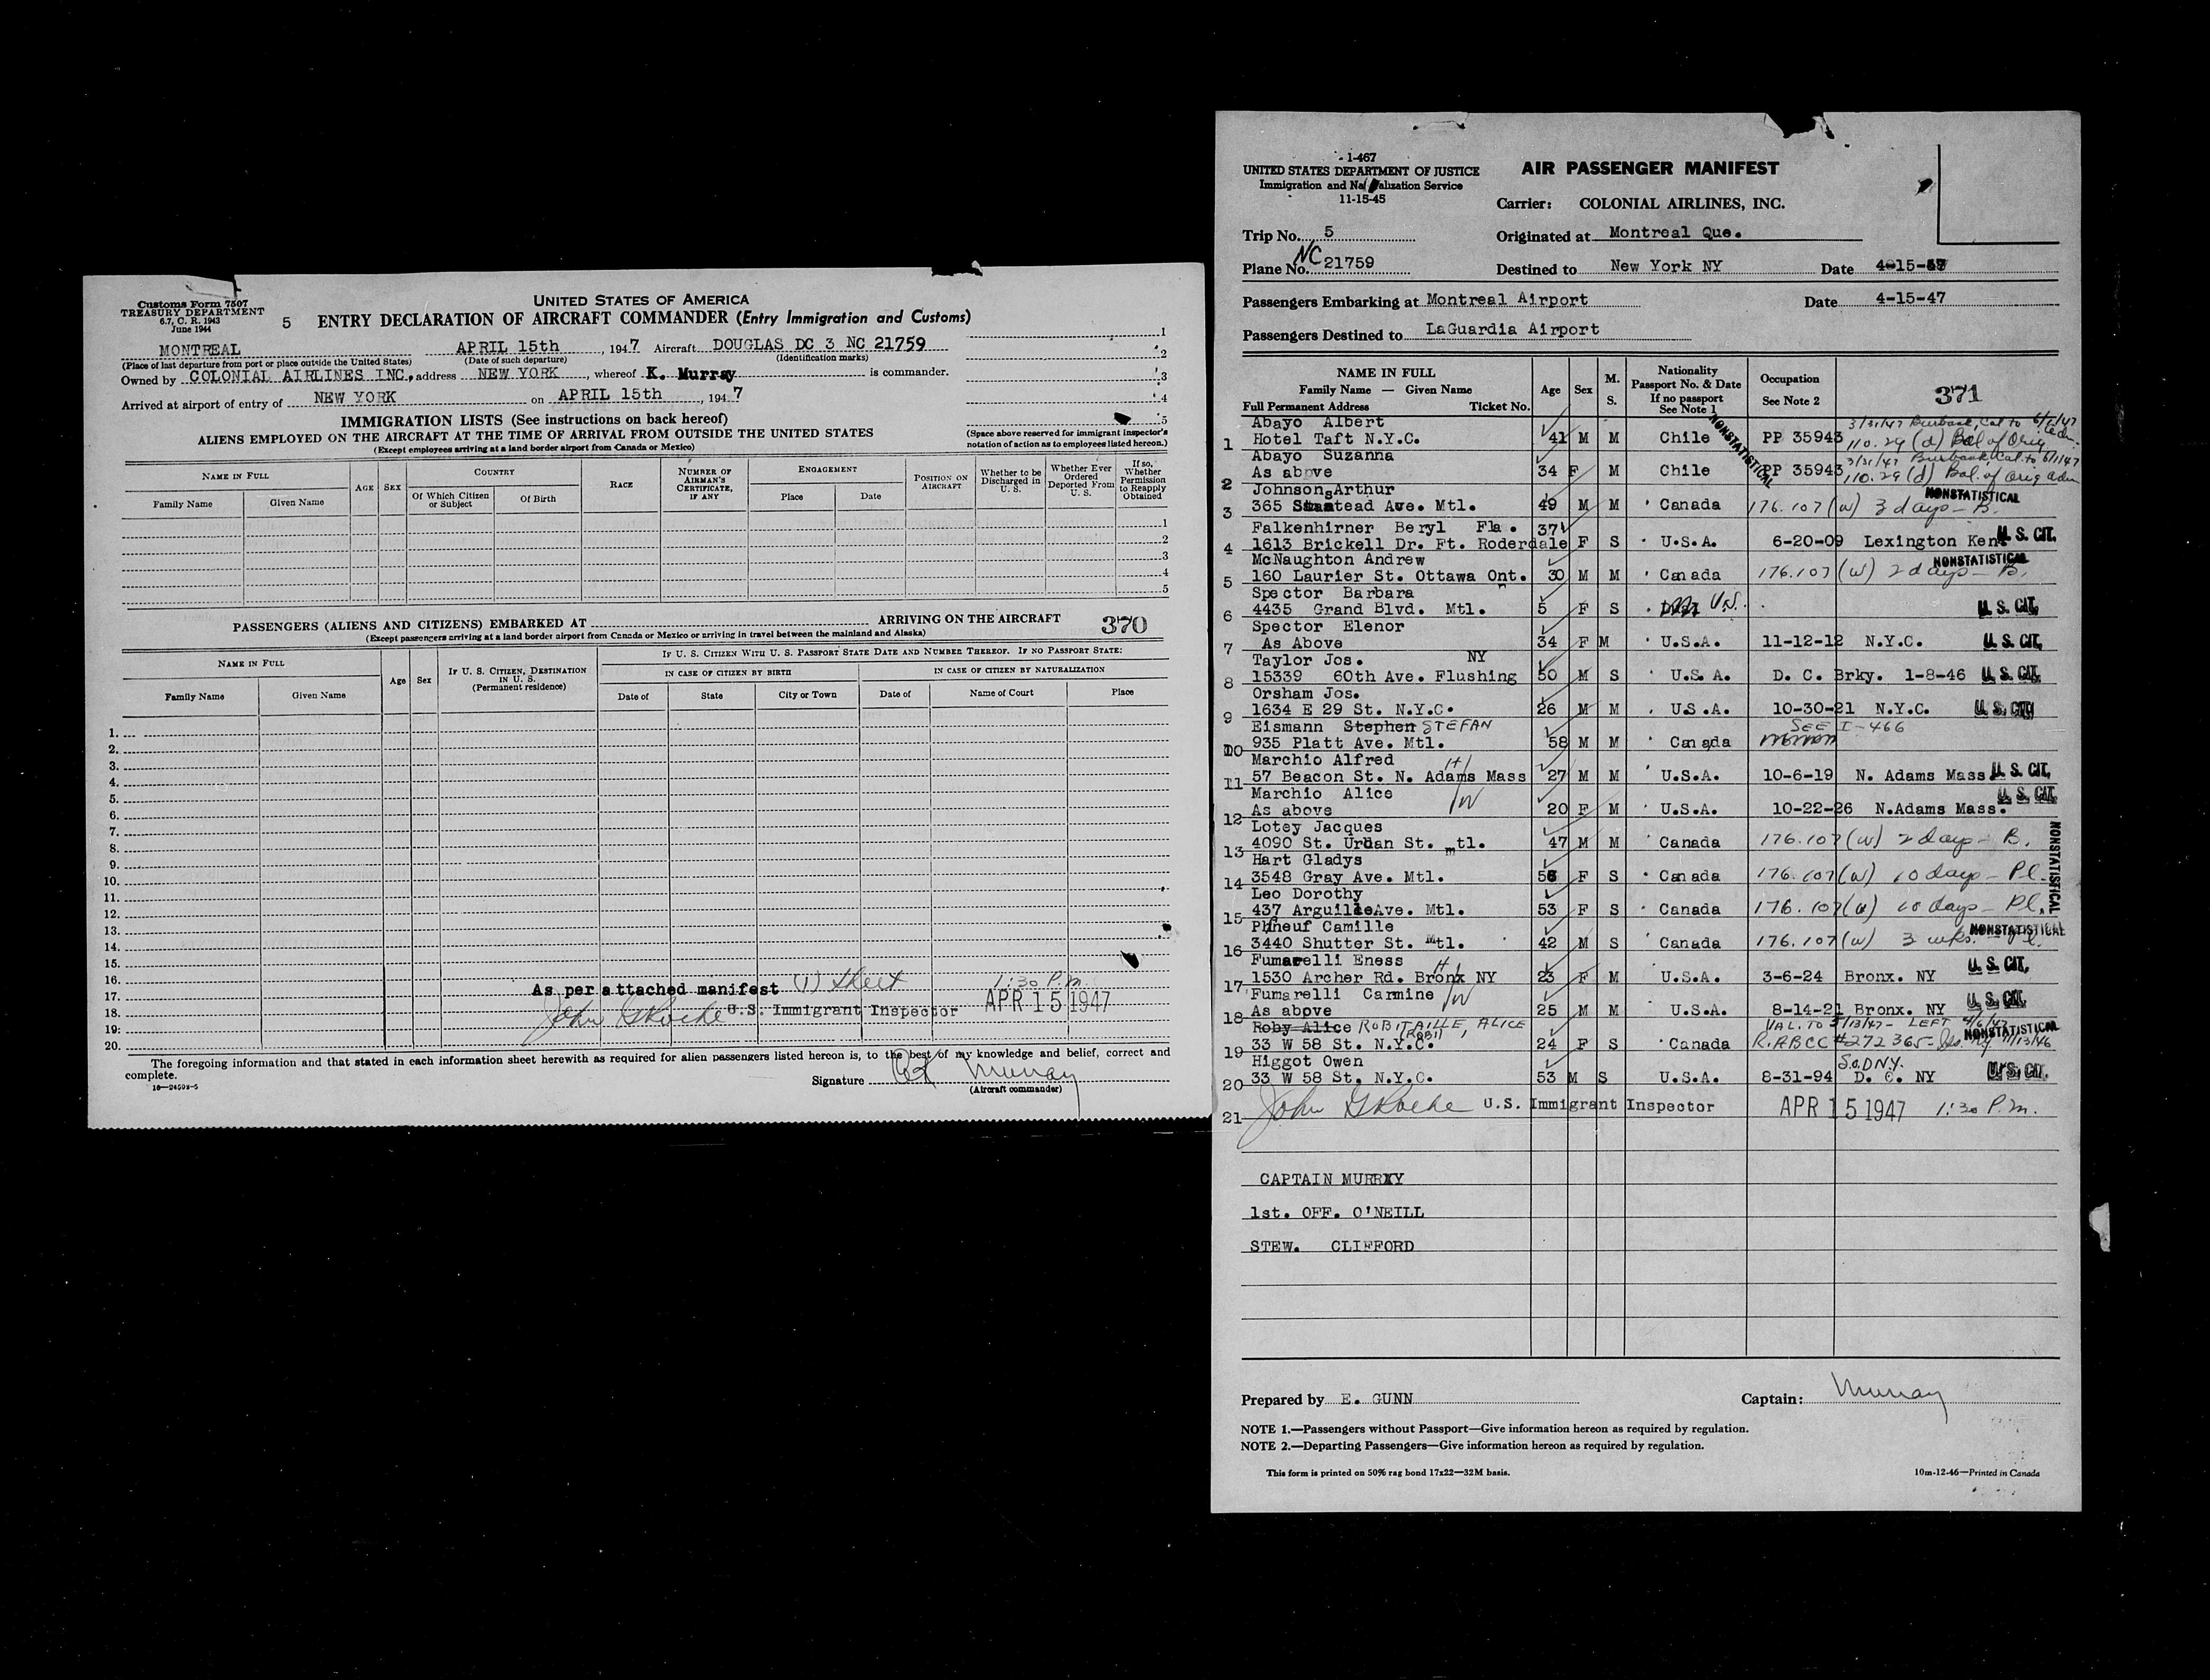 Customs Form 7507
TREASURY DEPARTMENT
6.7, C. R. 1943
June 1944
5
UNITED STATES OF AMERICA
ENTRY DECLARATION OF AIRCRAFT COMMANDER (Entry Immigration and Customs)
MONTREAL APRIL 15th, 1947 Aircraft DOUGLAS DC 3 NC 21759
(Place of last departure from port or place outside the United States) (Date of such departure) (Identification marks)
Owned by COLONIAL AIRLINES INC., address NEW YORK, whereof K. Murray is commander.
Arrived at airport of entry of NEW YORK on APRIL 15th, 1947
1
2
3
4
5
IMMIGRATION LISTS (See instructions on back hereof)
ALIENS EMPLOYED ON THE AIRCRAFT AT THE TIME OF ARRIVAL FROM OUTSIDE THE UNITED STATES
(Except employees arriving at a land border airport from Canada or Mexico)
(Space above reserved for immigrant inspector's notation of action as to employees listed hereon.)
NAME IN FULL AGE SEX COUNTRY RACE NUMBER OF AIRMAN'S CERTIFICATE, IF ANY ENGAGEMENT POSITION ON AIRCRAFT Whether to be Discharged in U. S. Whether Ever Ordered Deported From U. S. If so, Whether Permission to Reapply Obtained
Family Name Given Name Of Which Citizen or Subject Of Birth Place Date
1
2
3
4
5
PASSENGERS (ALIENS AND CITIZENS) EMBARKED AT ARRIVING ON THE AIRCRAFT 370
(Except passengers arriving at a land border airport from Canada or Mexico or arriving in travel between the mainland and Alaska)
NAME IN FULL Age Sex IF U. S. CITIZEN, DESTINATION IN U. S. (Permanent residence) IF U. S. CITIZEN WITH U. S. PASSPORT STATE DATE AND NUMBER THEREOF. IF NO PASSPORT STATE:
IN CASE OF CITIZEN BY BIRTH IN CASE OF CITIZEN BY NATURALIZATION
Family Name Given Name Date of State City or Town Date of Name of Court Place
1.
2.
3.
4.
5.
6.
7.
8.
9.
10.
11.
12.
13.
14.
15.
16.
17.
18.
19.
20.
As per attached manifest (1) sheet 1:30 P.m.
U.S. Immigrant Inspector APR 15 1947
The foregoing information and that stated in each information sheet herewith as required for alien passengers listed hereon is, to the best of my knowledge and belief, correct and complete.
16-24592-5
Signature Murray
(Aircraft commander)
I-467
UNITED STATES DEPARTMENT OF JUSTICE
Immigration and Naturalization Service
11-15-45
AIR PASSENGER MANIFEST
Carrier: COLONIAL AIRLINES, INC.
Trip No. 5 Originated at Montreal Que.
Plane No. NC 21759 Destined to New York NY Date 4-15-47
Passengers Embarking at Montreal Airport Date 4-15-47
Passengers Destined to LaGuardia Airport
NAME IN FULL Age Sex M. S. Nationality Occupation 371
Family Name — Given Name Passport No. & Date If no passport See Note 1 See Note 2
Full Permanent Address Ticket No.
Abayo Albert 3/31/47 Burbank, Cal to 6/1/47
1 Hotel Taft N.Y.C. 41 M M Chile PP 35943 110.29 (d) Bal of Orig adm.
NONSTATISTICAL
Abayo Suzanna 3/31/47 Burbank Cal. to 6/1/47
2 As above 34 F M Chile PP 35943 110.29 (d) Bal. of Orig adm
Johnson, Arthur NONSTATISTICAL
3 365 Stanstead Ave. Mtl. 49 M M Canada 176.107 (w) 3 days - B.
Falkenhirner Beryl Fla. 37
4 1613 Brickell Dr. Ft. Roderdale F S U.S.A. 6-20-09 Lexington Ken U. S. CIT.
McNaughton Andrew NONSTATISTICAL
5 160 Laurier St. Ottawa Ont. 30 M M Canada 176.107 (w) 2 days - B.
Spector Barbara
6 4435 Grand Blvd. Mtl. 5 F S U.S. U. S. CIT.
Spector Elenor
7 As Above 34 F M U.S.A. 11-12-12 N.Y.C. U. S. CIT.
Taylor Jos. NY
8 15339 60th Ave. Flushing 50 M S U.S. A. D. C. Brky. 1-8-46 U. S. CIT.
Orsham Jos.
9 1634 E 29 St. N.Y.C. 26 M M U.S.A. 10-30-21 N.Y.C. U. S. CIT.
Eismann Stephen STEFAN SEE I-466
10 935 Platt Ave. Mtl. 58 M M Canada
Marchio Alfred H
11 57 Beacon St. N. Adams Mass 27 M M U.S.A. 10-6-19 N. Adams Mass U. S. CIT.
Marchio Alice W
12 As above 20 F M U.S.A. 10-22-26 N.Adams Mass. U. S. CIT.
Lotey Jacques
13 4090 St. Urdan St. mtl. 47 M M Canada 176.107 (w) 2 days - B.
Hart Gladys
14 3548 Gray Ave. Mtl. 56 F S Canada 176.107 (w) 10 days - Pl.
NONSTATISTICAL
Leo Dorothy
15 437 Arguille Ave. Mtl. 53 F S Canada 176.107 (w) 10 days - Pl.
Phneuf Camille
16 3440 Shutter St. Mtl. 42 M S Canada 176.107 (w) 3 wks. NONSTATISTICAL
Fumarelli Eness H
17 1530 Archer Rd. Bronx NY 23 F M U.S.A. 3-6-24 Bronx. NY U. S. CIT.
Fumarelli Carmine W
18 As above 25 M M U.S.A. 8-14-21 Bronx. NY U. S. CIT.
Roby Alice ROBITAILLE, ALICE VAL. TO 5/13/47 - LEFT NONSTATISTICAL
19 33 W 58 St. N.Y.C. 24 F S Canada R.A.BCC #272365
Higgot Owen So. D N.Y.
20 33 W 58 St. N.Y.C. 53 M S U.S.A. 8-31-94 D. C. NY U. S. CIT.
21 U.S. Immigrant Inspector APR 15 1947 1:30 P.m.
CAPTAIN MURRAY
1st. OFF. O'NEILL
STEW. CLIFFORD
Prepared by E. GUNN Captain: Murray
NOTE 1.—Passengers without Passport—Give information hereon as required by regulation.
NOTE 2.—Departing Passengers—Give information hereon as required by regulation.
This form is printed on 50% rag bond 17x22—32M basis. 10m-12-46—Printed in Canada